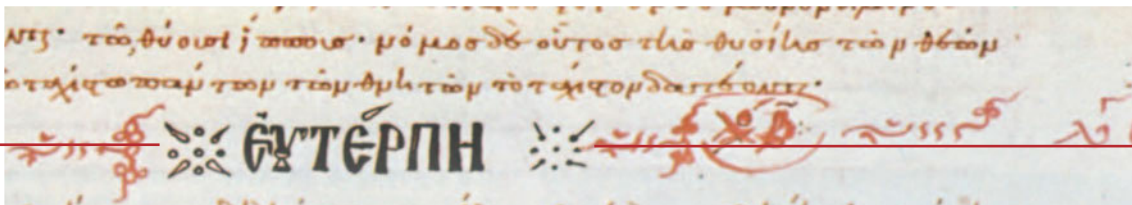 τῶ θύουσι ἵπποις· νόμος δὲ οὗτος τῆς θυσίης τῶν θεῶν
ταχίστω πάντων τῶν θνητῶν τὸ τάχιστον δατέονται·
ἘΥΤΈΡΠΗ